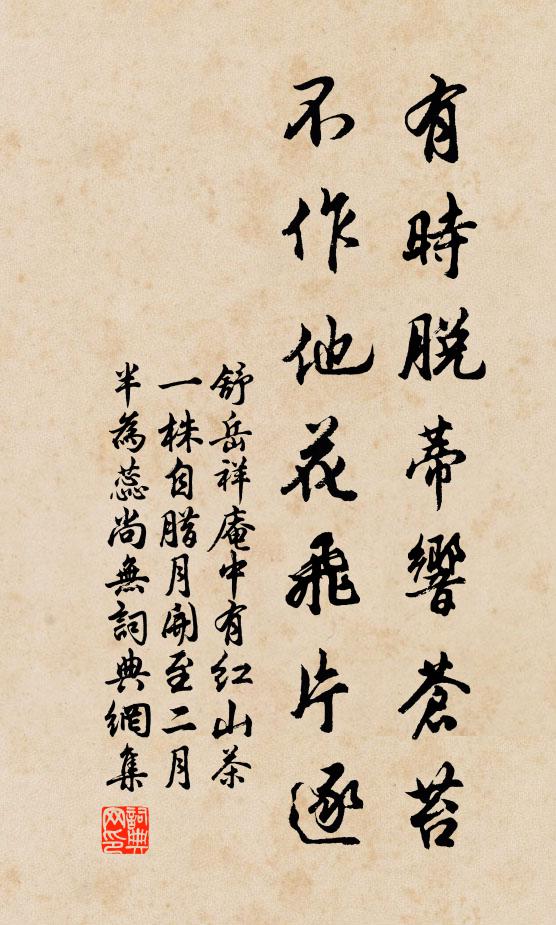 有時脫蒂響蒼苔
不作他花飛片逐
舒岳祥庵中有红山茶
一株自腊月開至二月
半為蕊尚無詞典網集
詞典网印